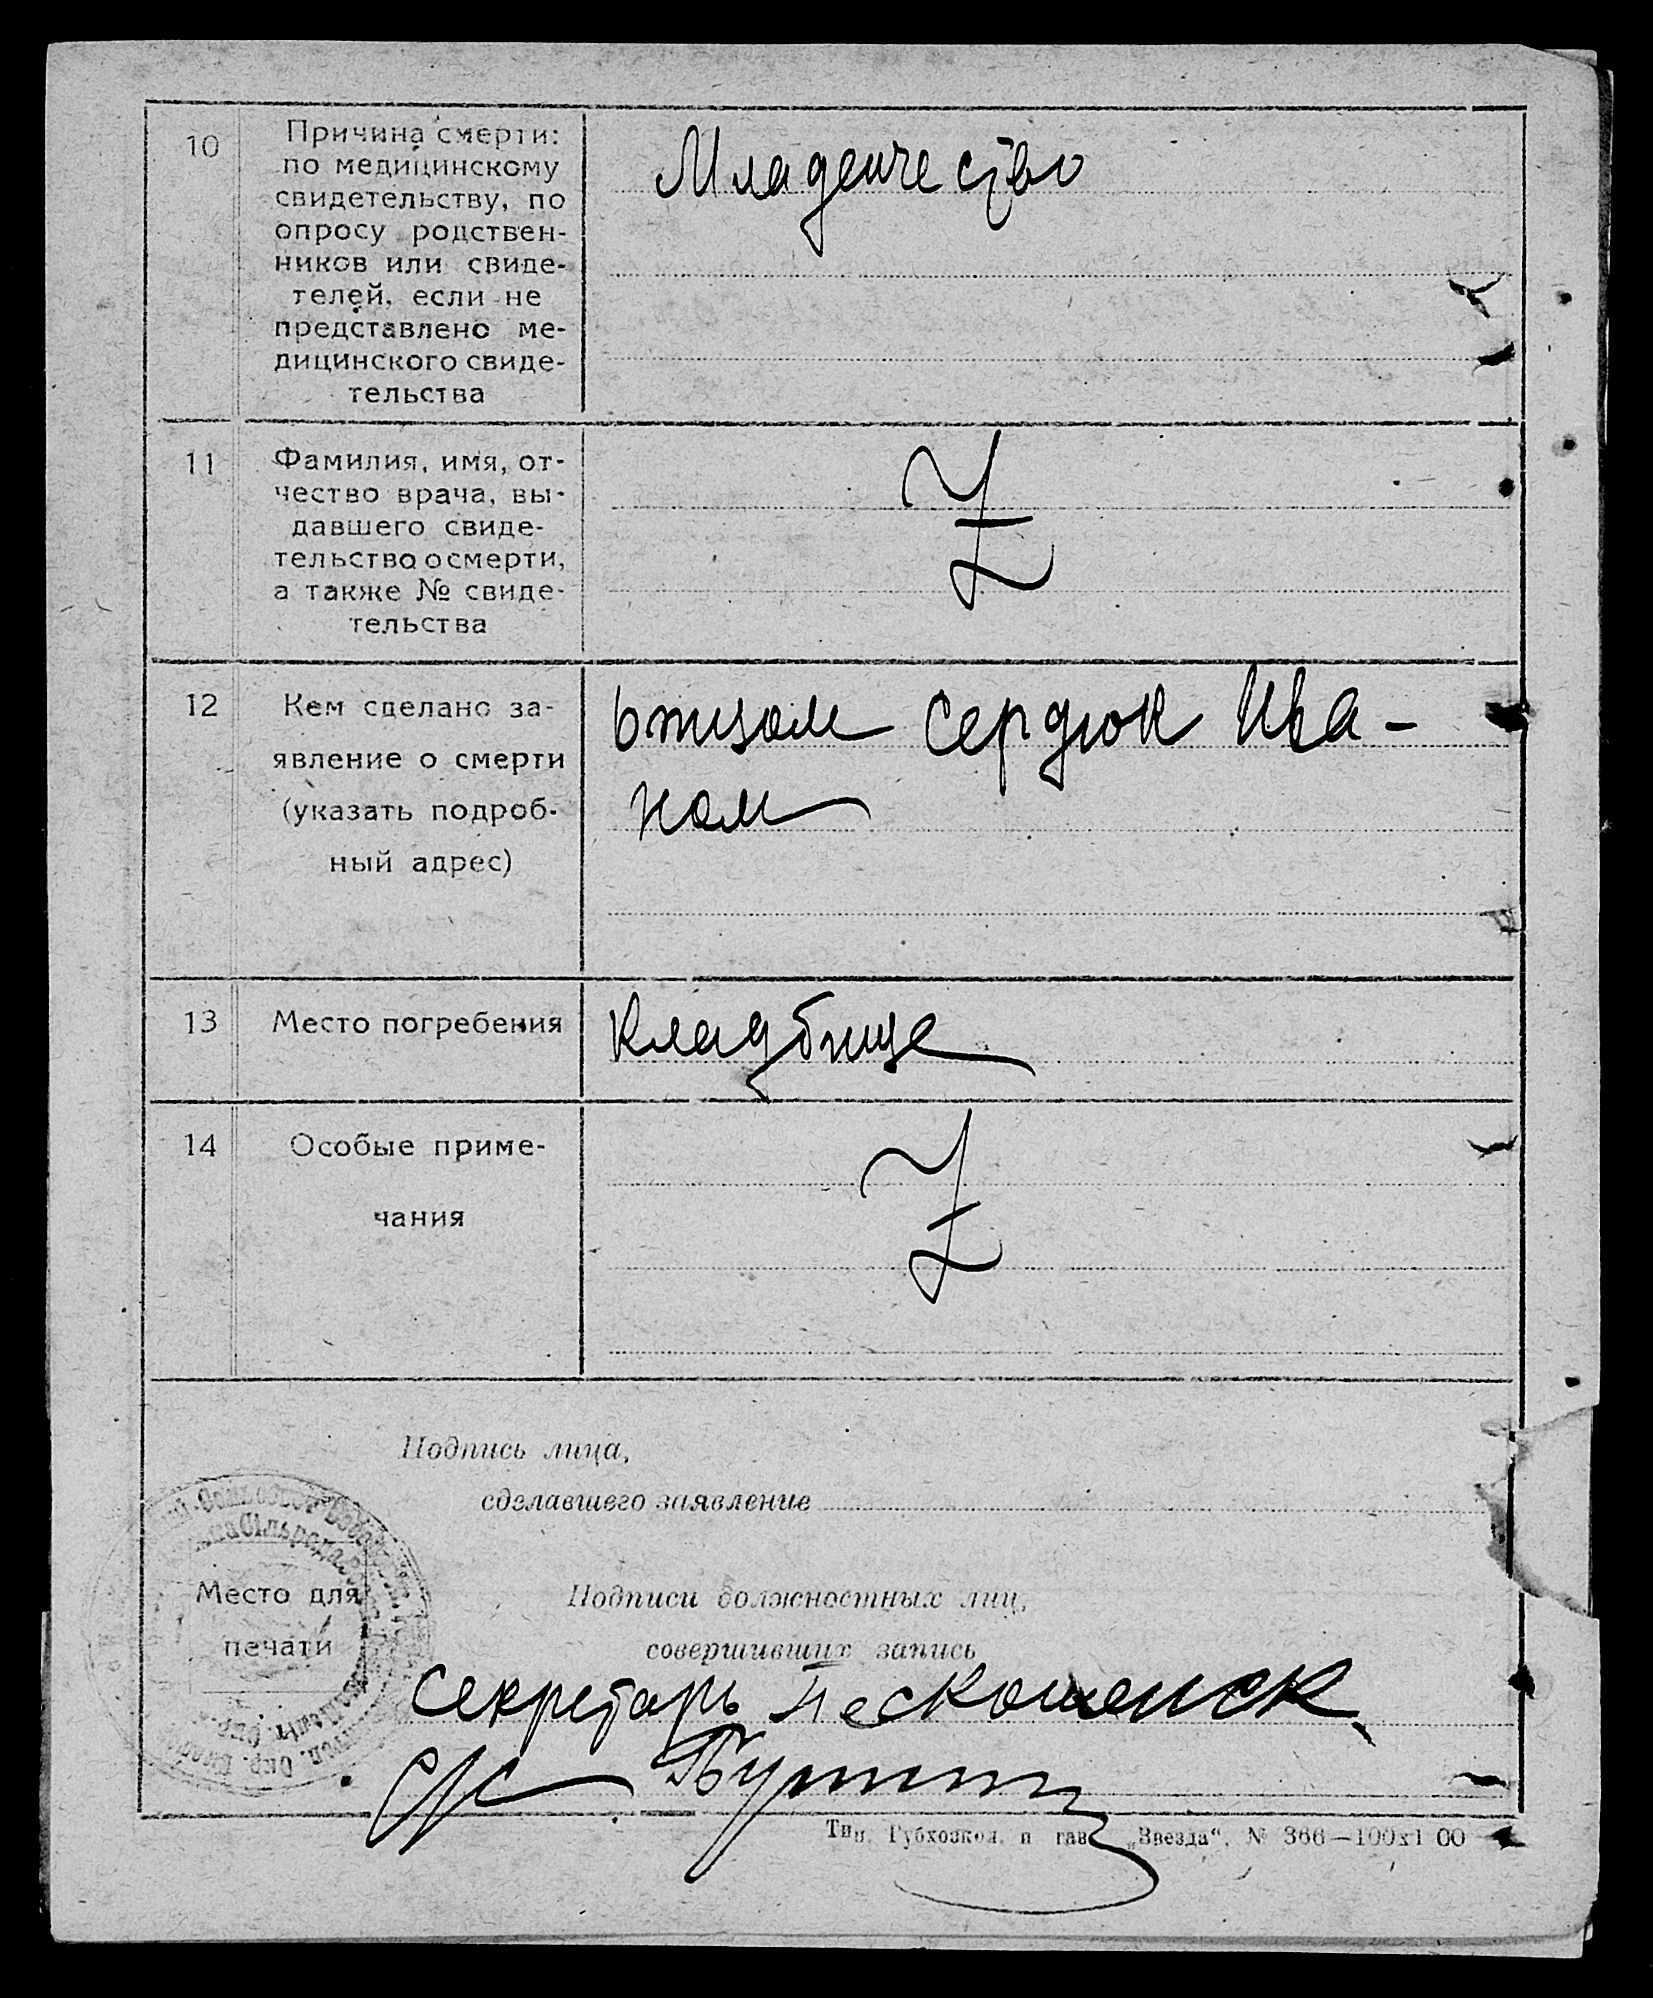 10
Причина смерти:
по медицинскому
свидетельству, по
опросу родствен-
ников или свиде-
телей, если не
представлено ме-
дицинского свиде-
тельства
Младенчество
11
Фамилия, имя, от-
чество врача, вы-
давшего свиде-
тельство о смерти,
а также № свиде-
тельства
Z
12
Кем сделано за-
явление о смерти
(указать подроб-
ный адрес)
Отцом Сердюк Ива-
ном
13
Место погребения
Кладбище
14
Особые приме-
чания
Z
Подпись лица,
сделавшего заявление
Место для
печати
Подписи должностных лиц,
совершивших запись
Секретарь Пескошенск.
с/с
Тип. Губхозкол. п газ. „Звезда“, № 366—100х1 00